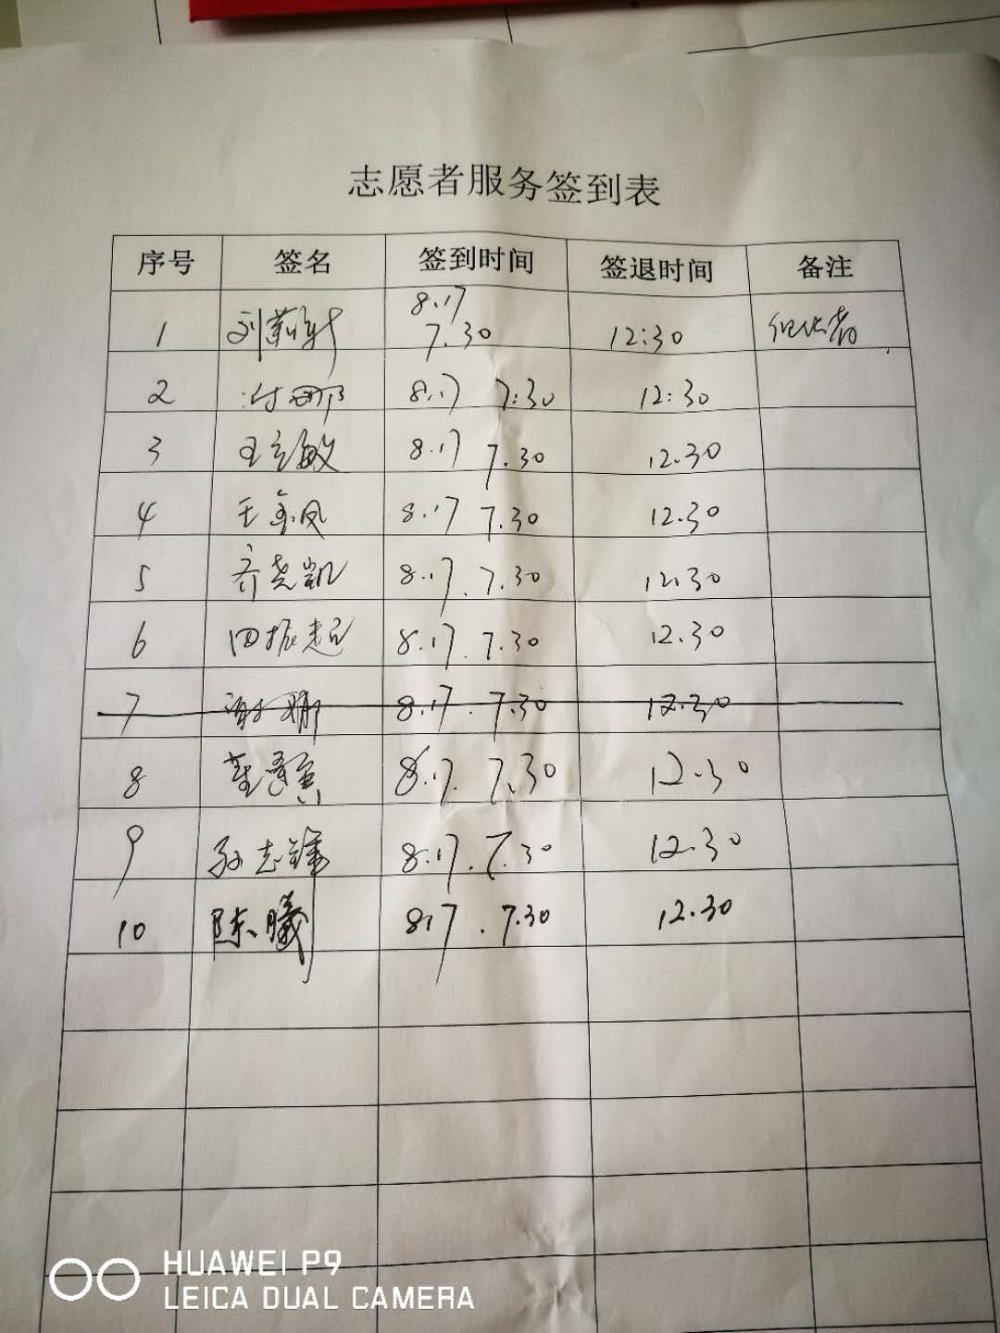 志愿者服务签到表
序号 签名 签到时间 签退时间 备注
8.17
1 刘 7.30 12:30 组织者
2 付娜 8.17 7:30 12:30
3 王立敏 8.17 7.30 12.30
4 王金凤 8.17 7.30 12.30
5 齐尧凯 8.17. 7.30 12.30
6 田振超 8.17. 7.30 12.30
7 8.17. 7.30 12.30
8 8.17. 7.30 12.30
9 孙志锋 8.17. 7.30 12.30
10 陈曦 8.17 . 7.30 12.30
HUAWEI P9
LEICA DUAL CAMERA